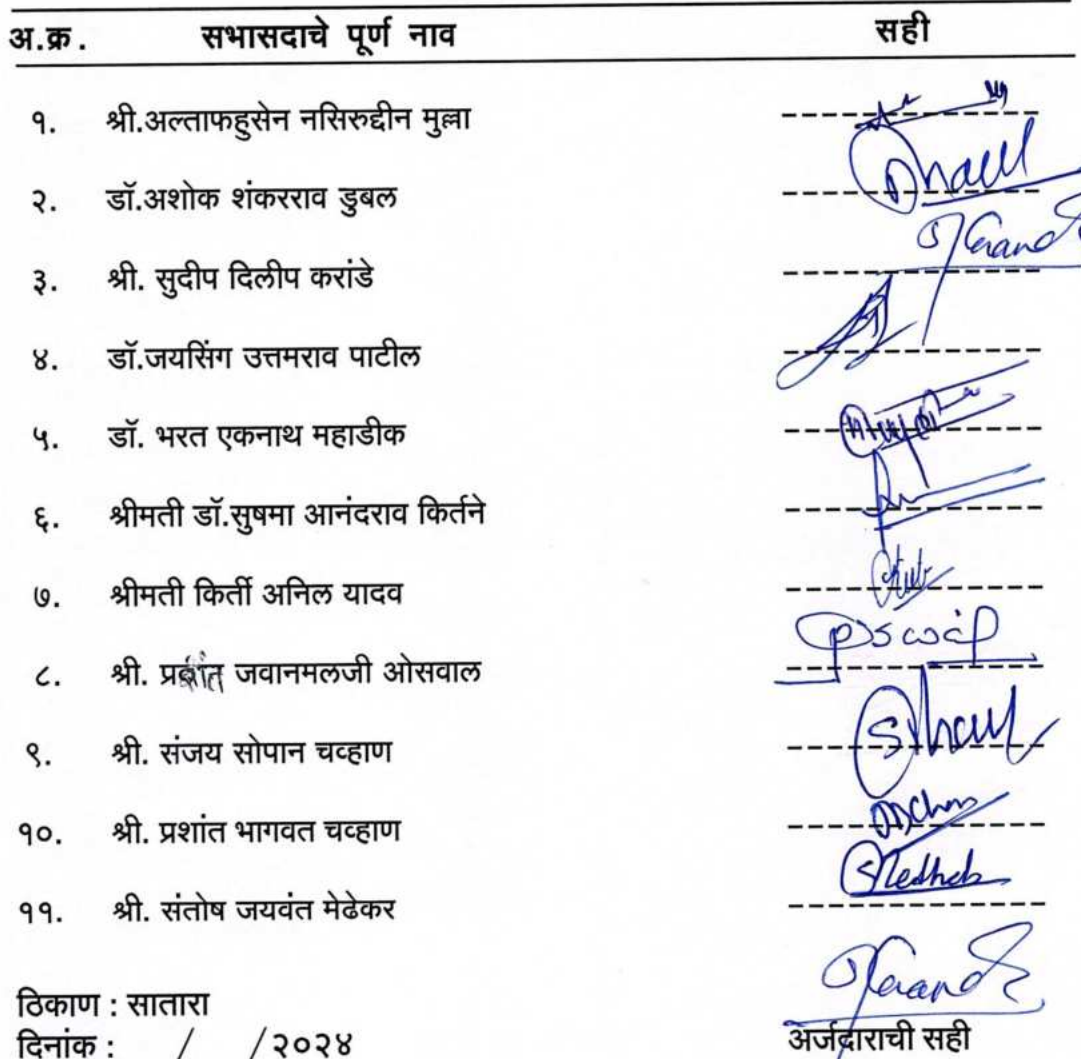 अ.क्र. सभासदाचे पूर्ण नाव सही
१. श्री.अल्ताफहुसेन नसिरुद्दीन मुल्ला
२. डॉ.अशोक शंकरराव डुबल
३. श्री. सुदीप दिलीप करांडे
४. डॉ.जयसिंग उत्तमराव पाटील
५. डॉ. भरत एकनाथ महाडीक
६. श्रीमती डॉ.सुषमा आनंदराव किर्तने
७. श्रीमती किर्ती अनिल यादव
८. श्री. जवानमलजी ओसवाल
९. श्री. संजय सोपान चव्हाण
१०. श्री. प्रशांत भागवत चव्हाण
११. श्री. संतोष जयवंत मेढेकर
ठिकाण : सातारा
दिनांक : / /२०२४ अर्जदाराची सही